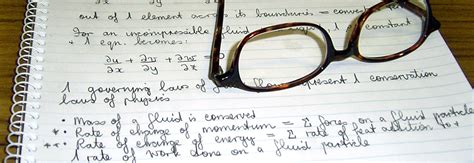 out of 1 element across its boundaries = convect
For an incompressible fluid constant
→ 1 eqn. becomes:
∂u/∂x + ∂v/∂y + ∂w/∂z = 0
1 governing laws of fluid flow represent 1 conservation
laws of physics
• Mass of a fluid is conserved
• Rate of change of momentum = Σ forces on a fluid particle
• Rate of change of energy = Σ rate of heat addition to +
1 rate of work done on a fluid particle